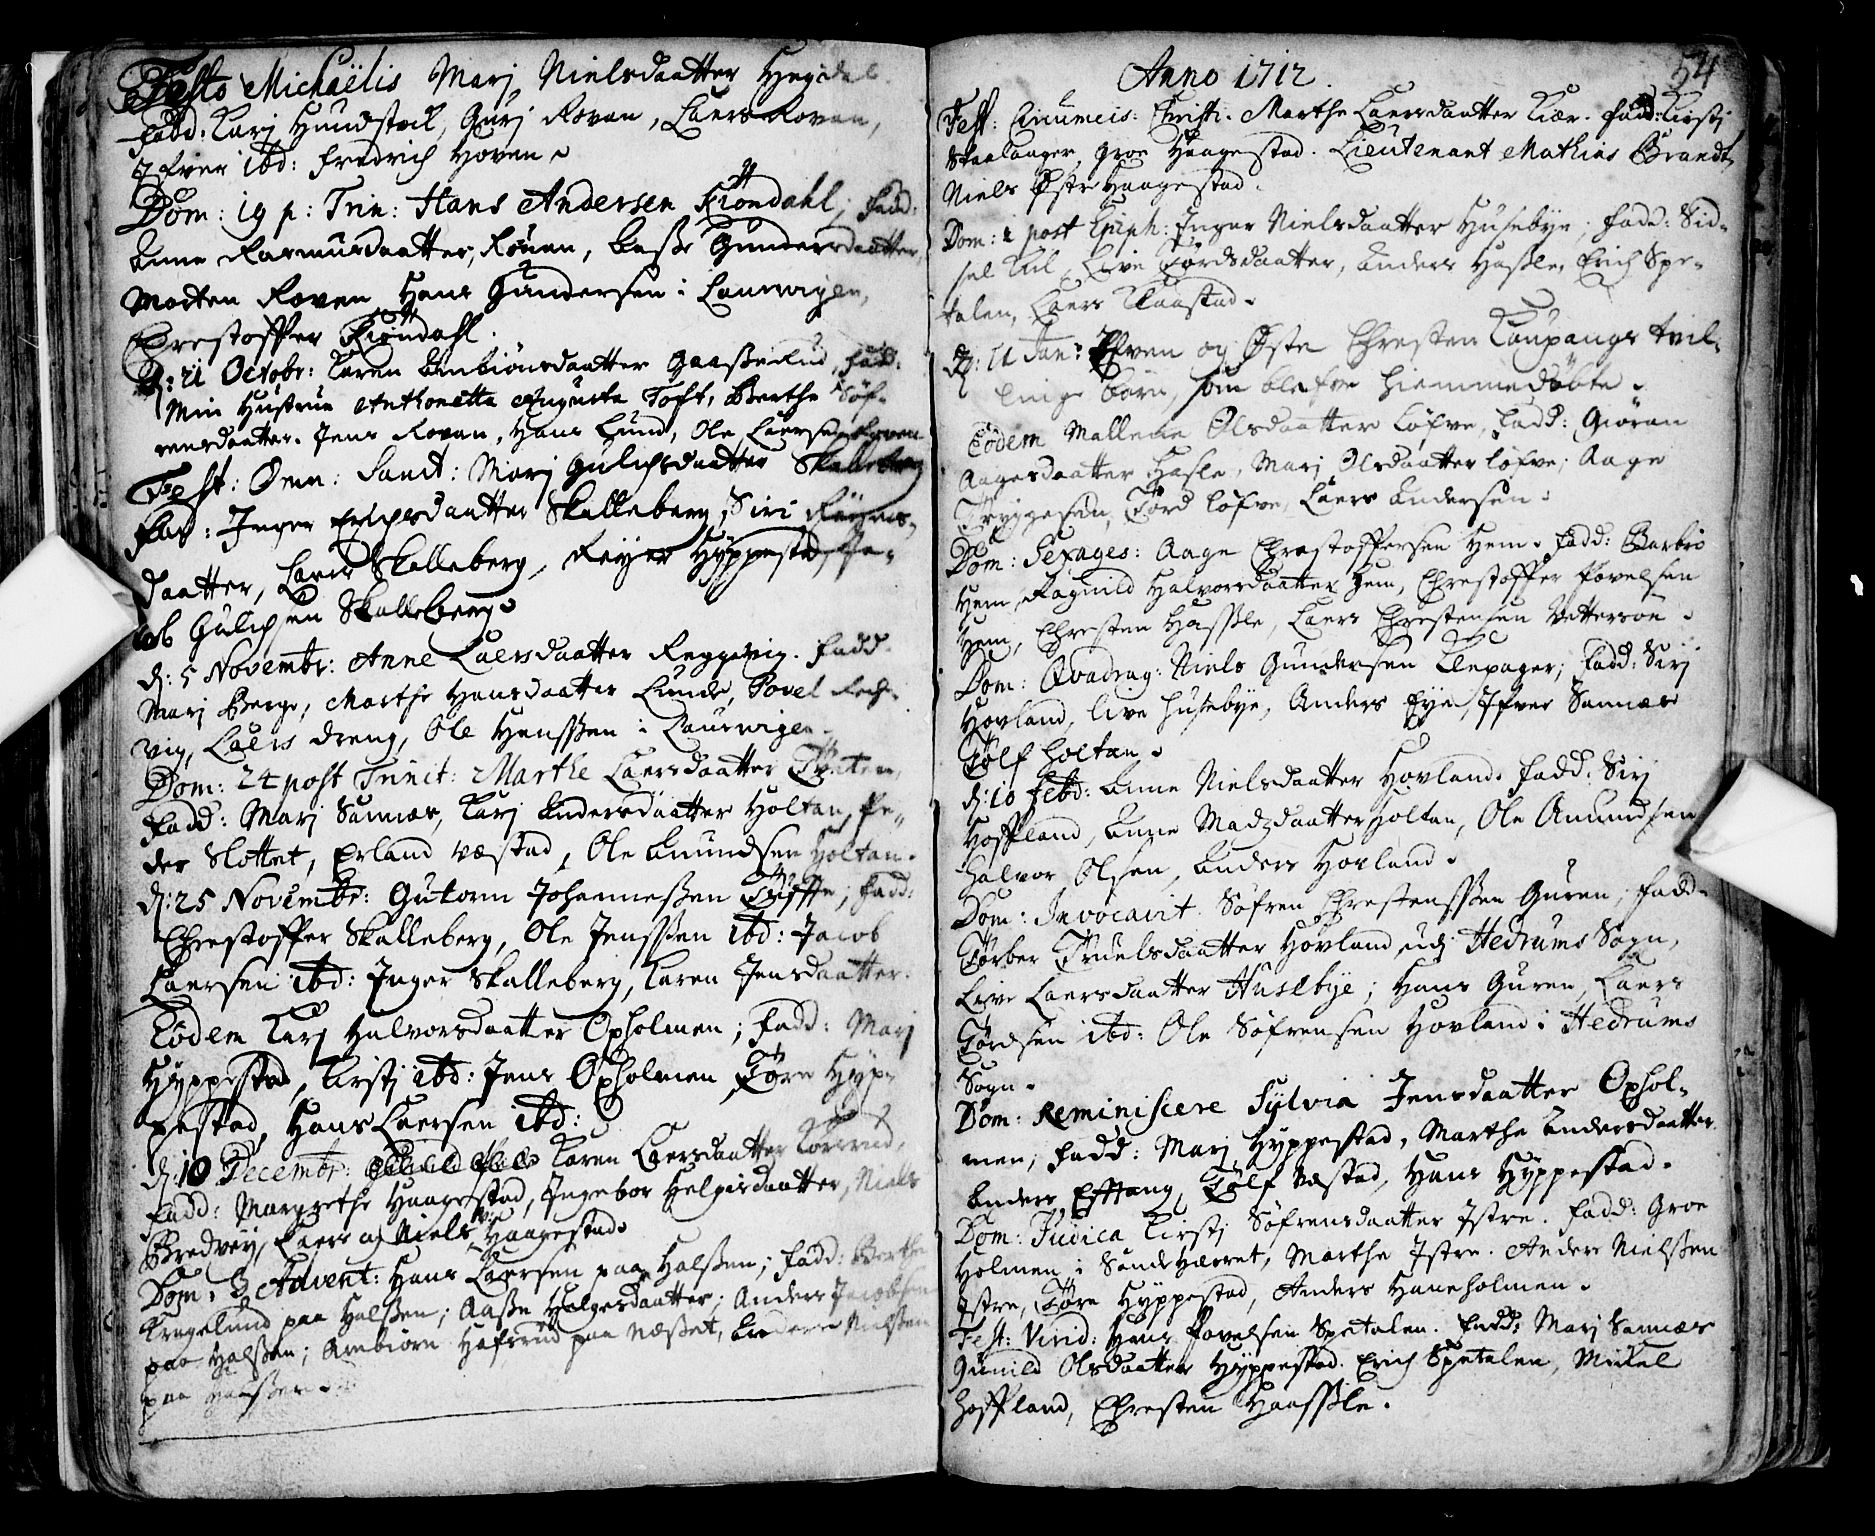 Festo Michaëlis Marj Nielsdaatter Hegdal.
Fadd: Karj Hundstvit, Gurj Roven, Laers Roven,
Ifver ibd: Fredrich Hoven.
Dom: 19 p: Trin: Hans Andersen Kiöndahl; Fadd:
Anne Rasmusdaatter, Röuen, Berte Gundersdaatter,
Morten Roven, Hans Gundersen i Laurwigen,
Chrestoffer Kiöndahl.
d: 21 Octobr: Karen Anbiönsdaatter Gaasserud, Fadd:
Min Hustrue Anthonetta Augusta Toft, Berthe Söf-
rensdaatter. Jens Roven, Hans Lund, Ole Laersen Roven
Fest: Omn: Sanct: Marj Gulichsdaatter Skalleberg
Fad: Inger Erichsdaatter Skalleberg, Siri Reiers-
daatter, Laers Skalleberg, Reyer Hyppestad,
ob Gulichsen Skalleberg.
d: 5 Novembr: Anne Laersdaatter Reggevig. Fadd.
Marj Berge, Marthe Hansdaatter Lunde, Povel Rech-
vig, Laers dreng, Ole Hanssen i Laurwigen.
Dom: 24 post Trinit: Marthe Laersdaatter Tveten,
Fadd: Marj Sannes, Karj Andersdaatter Holtan, Pe-
der Slottet, Erland Væstad, Ole Amundsen Holtan.
d: 25 Novembr: Gutorm Johannessen; Fadd:
Chrestoffer Skalleberg, Ole Jenssen ibd: Jacob
Laersen ibd: Inger Skalleberg, Karen Jensdaatter.
Eodem Karj Halvorsdaatter Opholmen; Fadd: Marj
Hyppestad, Kirstj ibd: Jens Opholmen, Tore Hyp-
pestad, Hans Laersen ibd:
d: 10 Decembr: Karen Laersdaatter
Fadd: Margrethe Haagestad, Ingebor Helgesdaatter, Niels
Bredvey, Laers og Niels Haagestad.
Dom: 3 Advent: Hans Laersen paa Halssen; Fadd: Berthe
Kragelund paa Halssen; Aasse Helgesdaatter; Anders Jacobsen
paa Halssen; Ambiörn Hafsrud paa Næsset, Anders Nielssen
paa Halssen.
54
Anno 1712.
Fest: Circumcis: Christi. Marthe Laersdaatter Kiær. Fadd: Kirstj
Skaalanger, Groe Haagestad. Lieutenant Mathias Brandt,
Niels Østre Haagestad.
Dom: 1 post Epiph: Inger Nielsdaatter Husebye; Fadd: Sid-
sel Kil, Live Tordsdaatter, Anders Hasle, Erich Spe-
talen, Laers Klaastad.
d: 11 Jan: Efven og Øste Chresten Kaupangs tvil-
linge börn, som blefve hiemmedöbte.
Eodem Mallene Olsdaatter Löfve, Fadd: Giöran
Aagesdaatter Hasle, Marj Olsdaatter Löfve; Aage
Tryggesen, Tord Löfve, Laers Andersen.
Dom: Sexages: Aage Chrestoffersen Hem. Fadd: Barbro
Hem, Ragnild Halvorsdaatter Hem, Chrestoffer Povelsen
Hem, Chresten Hassle, Laers Chrestensen Vettersöe.
Dom: Qvadrag: Niels Gundersen Klepager; Fadd: Sirj
Hovland, Live Husebye, Anders Eye, Ifver Sannes
Tolf Holtan.
d: 10 Febr: Anne Nielsdaatter Hovland. Fadd: Sirj
Hoffland, Anne Madzdaatter Holtan, Ole Amundsen
Halvor Olsen, Anders Hovland.
Dom: Invocavit. Söfren Chrestenssen Guren; Fadd.
Torber Truelsdaatter Hovland udj Hedrums Sogn,
Live Laersdaatter Husebye; Hans Guren, Laers
Tordsen ibd: Ole Söfrensen Hovland i Hedrums
Sogn.
Dom: Reminiscere Sylvia Jensdaatter Ophol-
men, Fadd: Marj Hyppestad, Marthe Andersdaatter.
Anders Efftang, Tolf Væstad, Hans Hyppestad.
Dom: Judica Kirstj Söfrensdaatter Istre. Fadd: Groe
Holmen i Sandehærret, Marthe Istre. Anders Nielssen
Istre, Tore Hyppestad, Anders Haneholmen.
Fest: Virid: Hans Povelsen Spetalen. Fadd: Marj Sannes
Gunild Olsdaatter Hyppestad. Erich Spetalen, Mikel
Hoffland, Chresten Haassle.